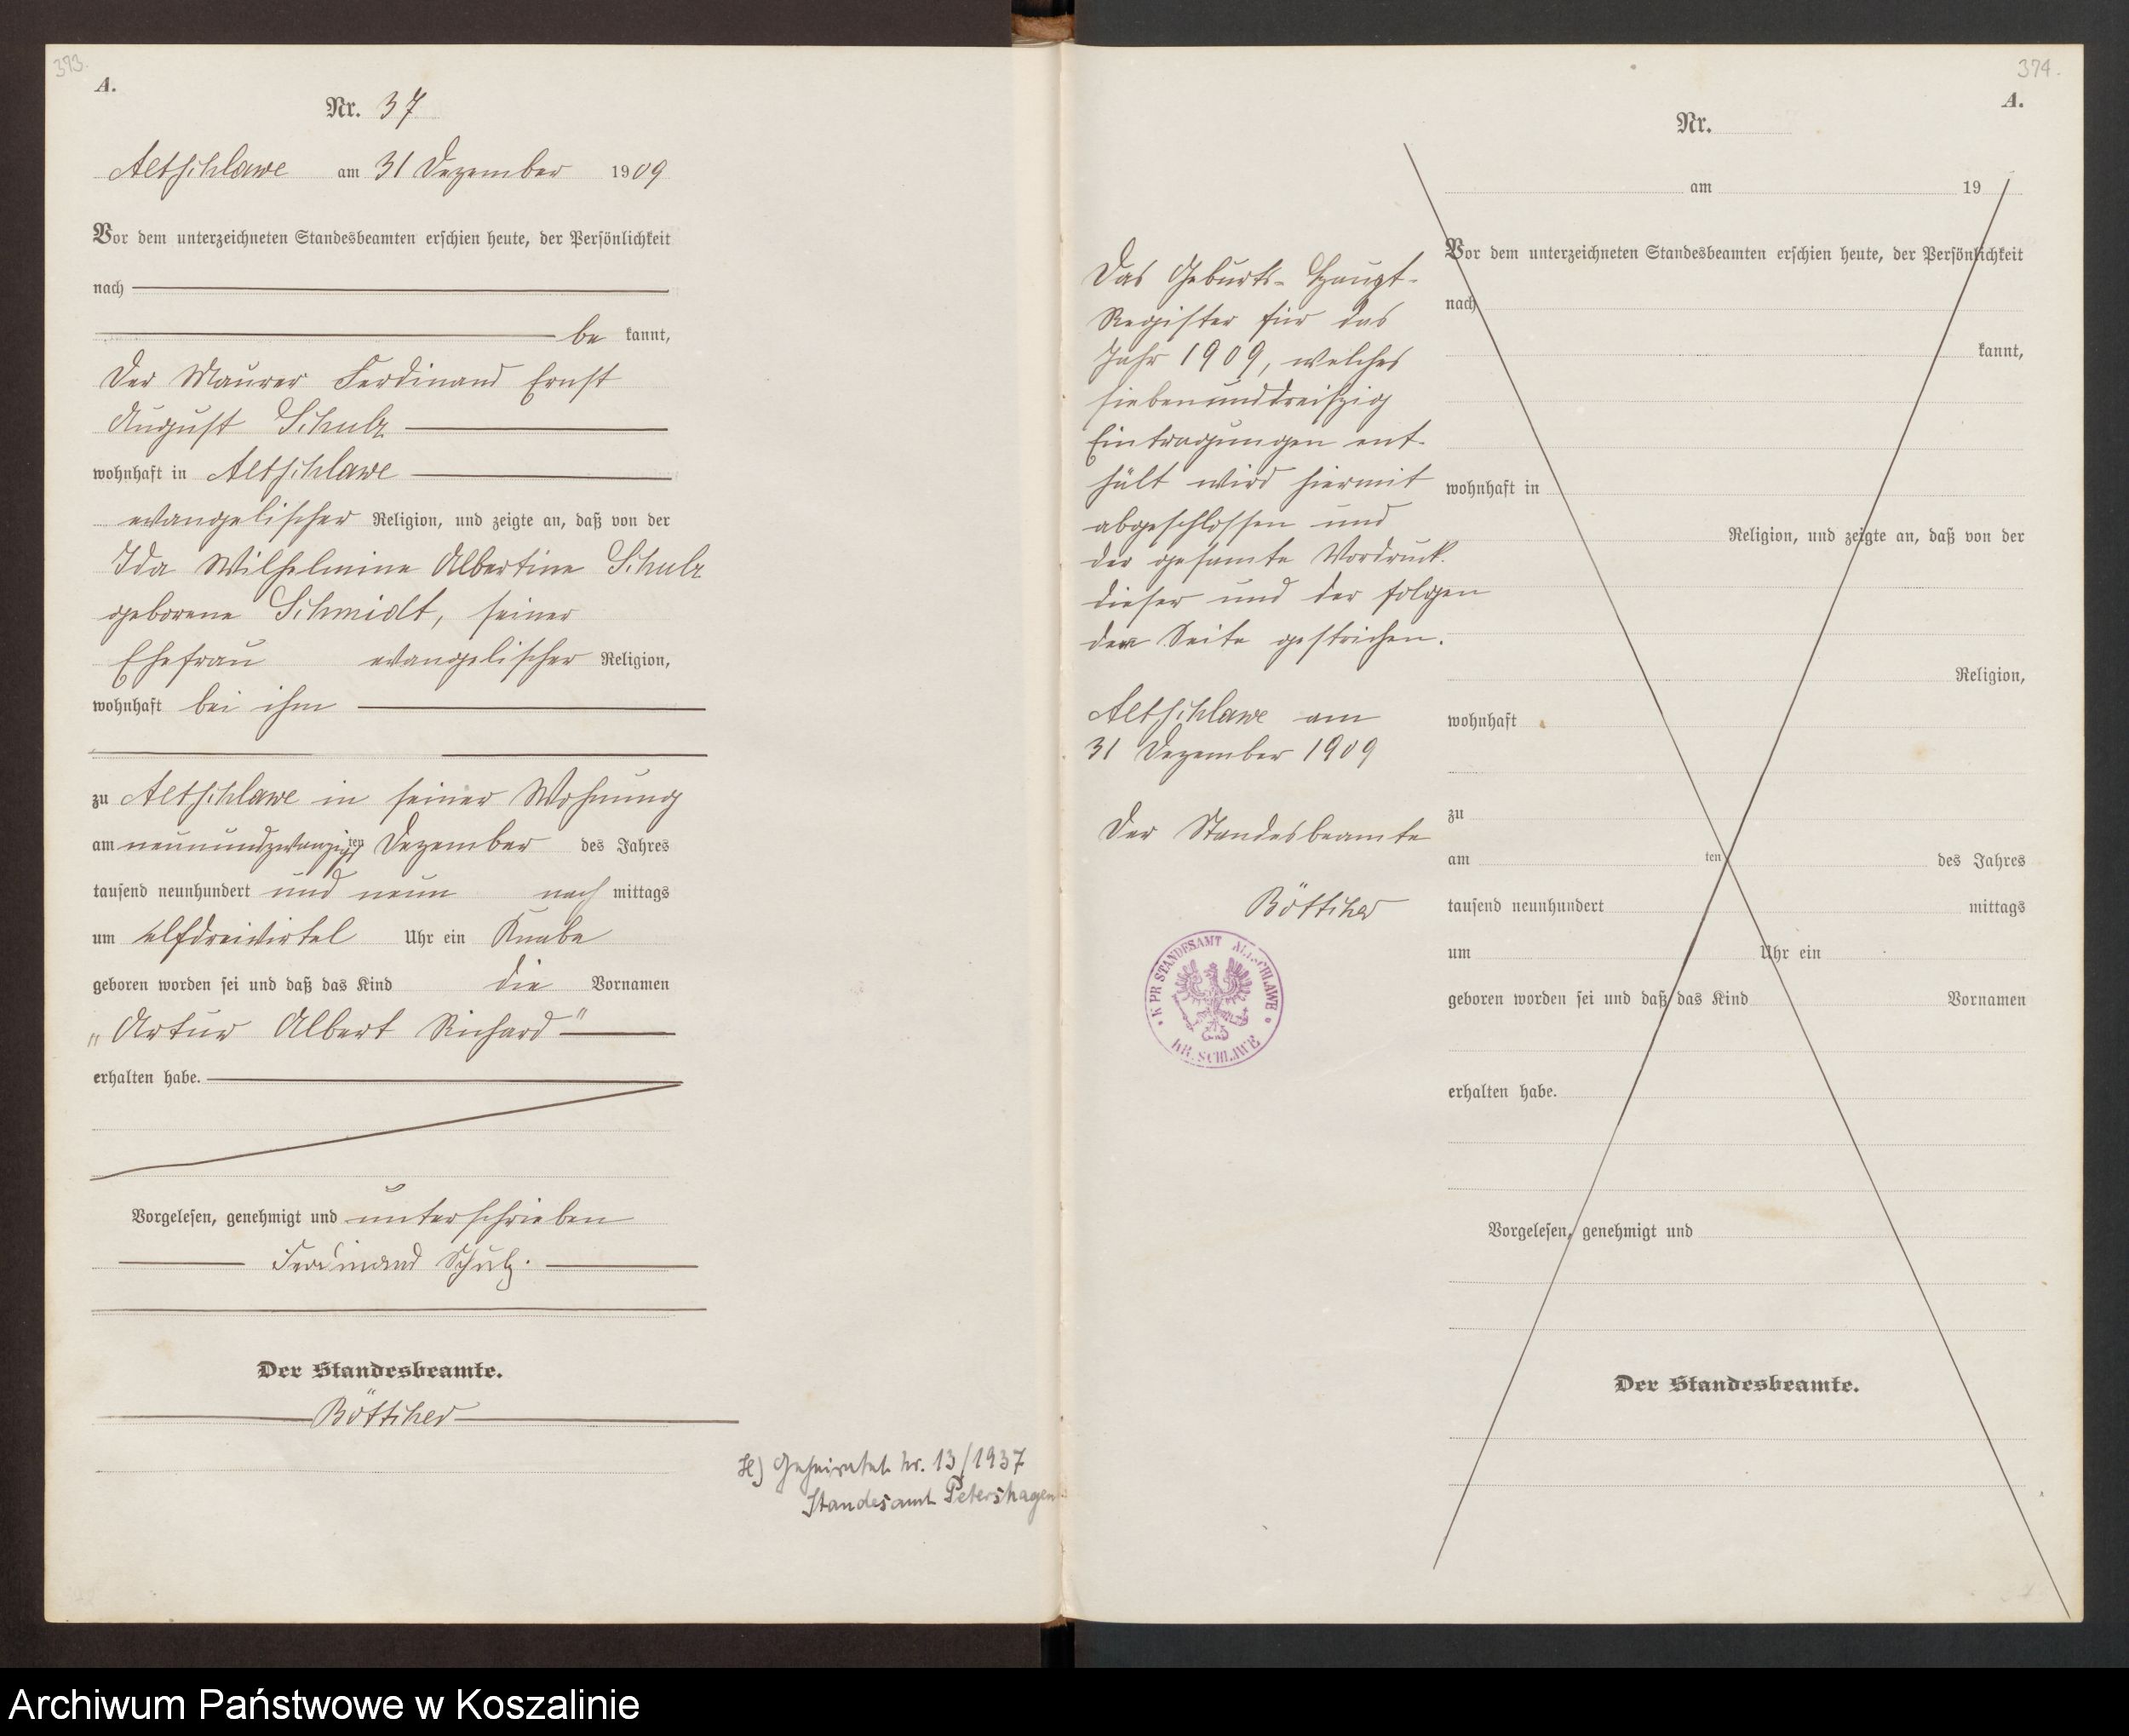 373.
A.
Nr. 37
Altschlawe am 31 Dezember 1909
Vor dem unterzeichneten Standesbeamten erschien heute, der Persönlichkeit
nach
be kannt,
der Maurer Ferdinand Ernst
August Schulz
wohnhaft in Altschlawe
evangelischer Religion, und zeigte an, daß von der
Ida Wilhelmine Albertine Schulz
geborene Schmidt, seiner
Ehefrau evangelischer Religion,
wohnhaft bei ihm
zu Altschlawe in seiner Wohnung
am neunundzwanzigsten Dezember des Jahres
tausend neunhundert und neun nach mittags
um elfdreivirtel Uhr ein Knabe
geboren worden sei und daß das Kind die Vornamen
„Artur Albert Richard"
erhalten habe.
Vorgelesen, genehmigt und unterschrieben
Ferdinand Schulz.
Der Standesbeamte.
Böttcher
Geheiratet Nr. 13/1937
Standesamt Petershagen
374.
A.
Nr.
am 19
Vor dem unterzeichneten Standesbeamten erschien heute, der Persönlichkeit
nach
kannt,
wohnhaft in
Religion, und zeigte an, daß von der
Religion,
wohnhaft
zu
am ten des Jahres
tausend neunhundert mittags
um Uhr ein
geboren worden sei und daß das Kind Vornamen
erhalten habe.
Vorgelesen, genehmigt und
Der Standesbeamte.
Das Geburts-Haupt-
Register für das
Jahr 1909, welches
siebenunddreißig
Eintragungen ent-
hält wird hiermit
abgeschlossen und
der gesamte Vordruck
dieser und der folgen
den Seite gestrichen.
Altschlawe am
31 Dezember 1909
Der Standesbeamte
Böttcher
K PR STANDESAMT ALTSCHLAWE
KR. SCHLAWE
Archiwum Państwowe w Koszalinie